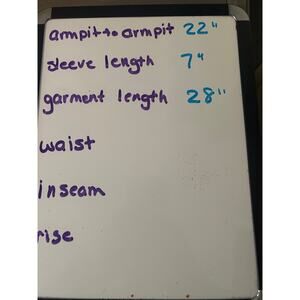 armpit to armpit 22"
sleeve length 7"
garment length 28"
waist
inseam
rise